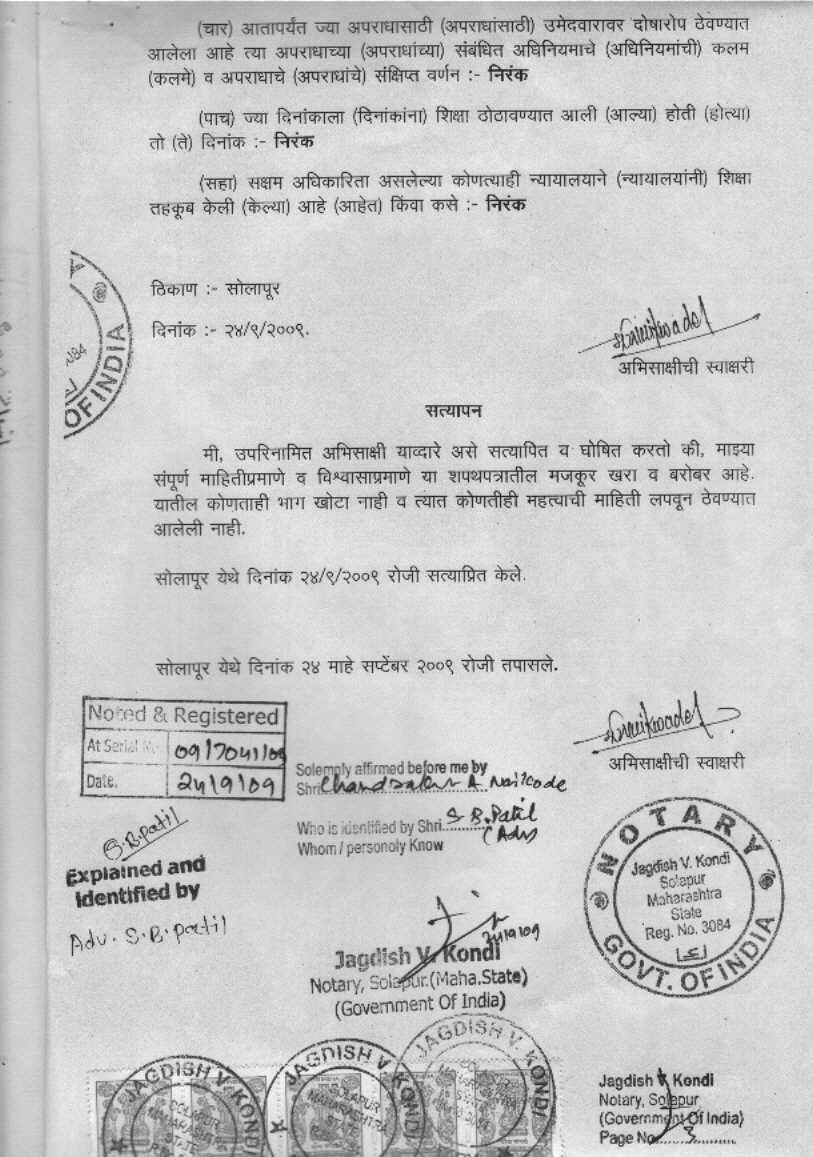 (चार) आतापर्यंत ज्या अपराधासाठी (अपराधांसाठी) उमेदवारावर दोषारोप ठेवण्यात
आलेला आहे त्या अपराधाच्या (अपराधांच्या) संबंधित अधिनियमाचे (अधिनियमांची) कलम
(कलमे) व अपराधाचे (अपराधांचे) संक्षिप्त वर्णन :- निरंक
(पाच) ज्या दिनांकाला (दिनांकांना) शिक्षा ठोठावण्यात आली (आल्या) होती (होत्या)
तो (ते) दिनांक :- निरंक
(सहा) सक्षम अधिकारिता असलेल्या कोणत्याही न्यायालयाने (न्यायालयांनी) शिक्षा
तहकूब केली (केल्या) आहे (आहेत) किंवा कसे :- निरंक
ठिकाण :- सोलापूर
दिनांक :- २४/९/२००९.
OF INDIA
अभिसाक्षीची स्वाक्षरी
सत्यापन
मी, उपरिनामित अभिसाक्षी याव्दारे असे सत्यापित व घोषित करतो की, माझ्या
संपूर्ण माहितीप्रमाणे व विश्वासाप्रमाणे या शपथपत्रातील मजकूर खरा व बरोबर आहे.
यातील कोणताही भाग खोटा नाही व त्यात कोणतीही महत्वाची माहिती लपवून ठेवण्यात
आलेली नाही.
सोलापूर येथे दिनांक २४/९/२००९ रोजी सत्याप्रित केले.
सोलापूर येथे दिनांक २४ माहे सप्टेंबर २००९ रोजी तपासले.
अभिसाक्षीची स्वाक्षरी
Noted & Registered
At Serial No. 09/7041/09
Date. 24/9/09
Solemply affirmed before me by
Shri
Who is identified by Shri. S. B. Patil
(Adv)
Whom / personoly Know
S.B.patil
Explained and
identified by
Adv. S.B. patil
24/9/09
Jagdish V. Kondi
Notary, Solapur.(Maha.State)
(Government Of India)
NOTARY
Jagdish V. Kondi
Solapur
Maharashtra
State
Reg. No. 3084
GOVT. OF INDIA
JAGDISH V. KONDI
SOLAPUR
MAHARASHTRA
STATE
JAGDISH V. KONDI
SOLAPUR
MAHARASHTRA
STATE
JAGDISH V. KONDI
Jagdish V. Kondi
Notary, Solapur
(Government Of India)
Page No. 3